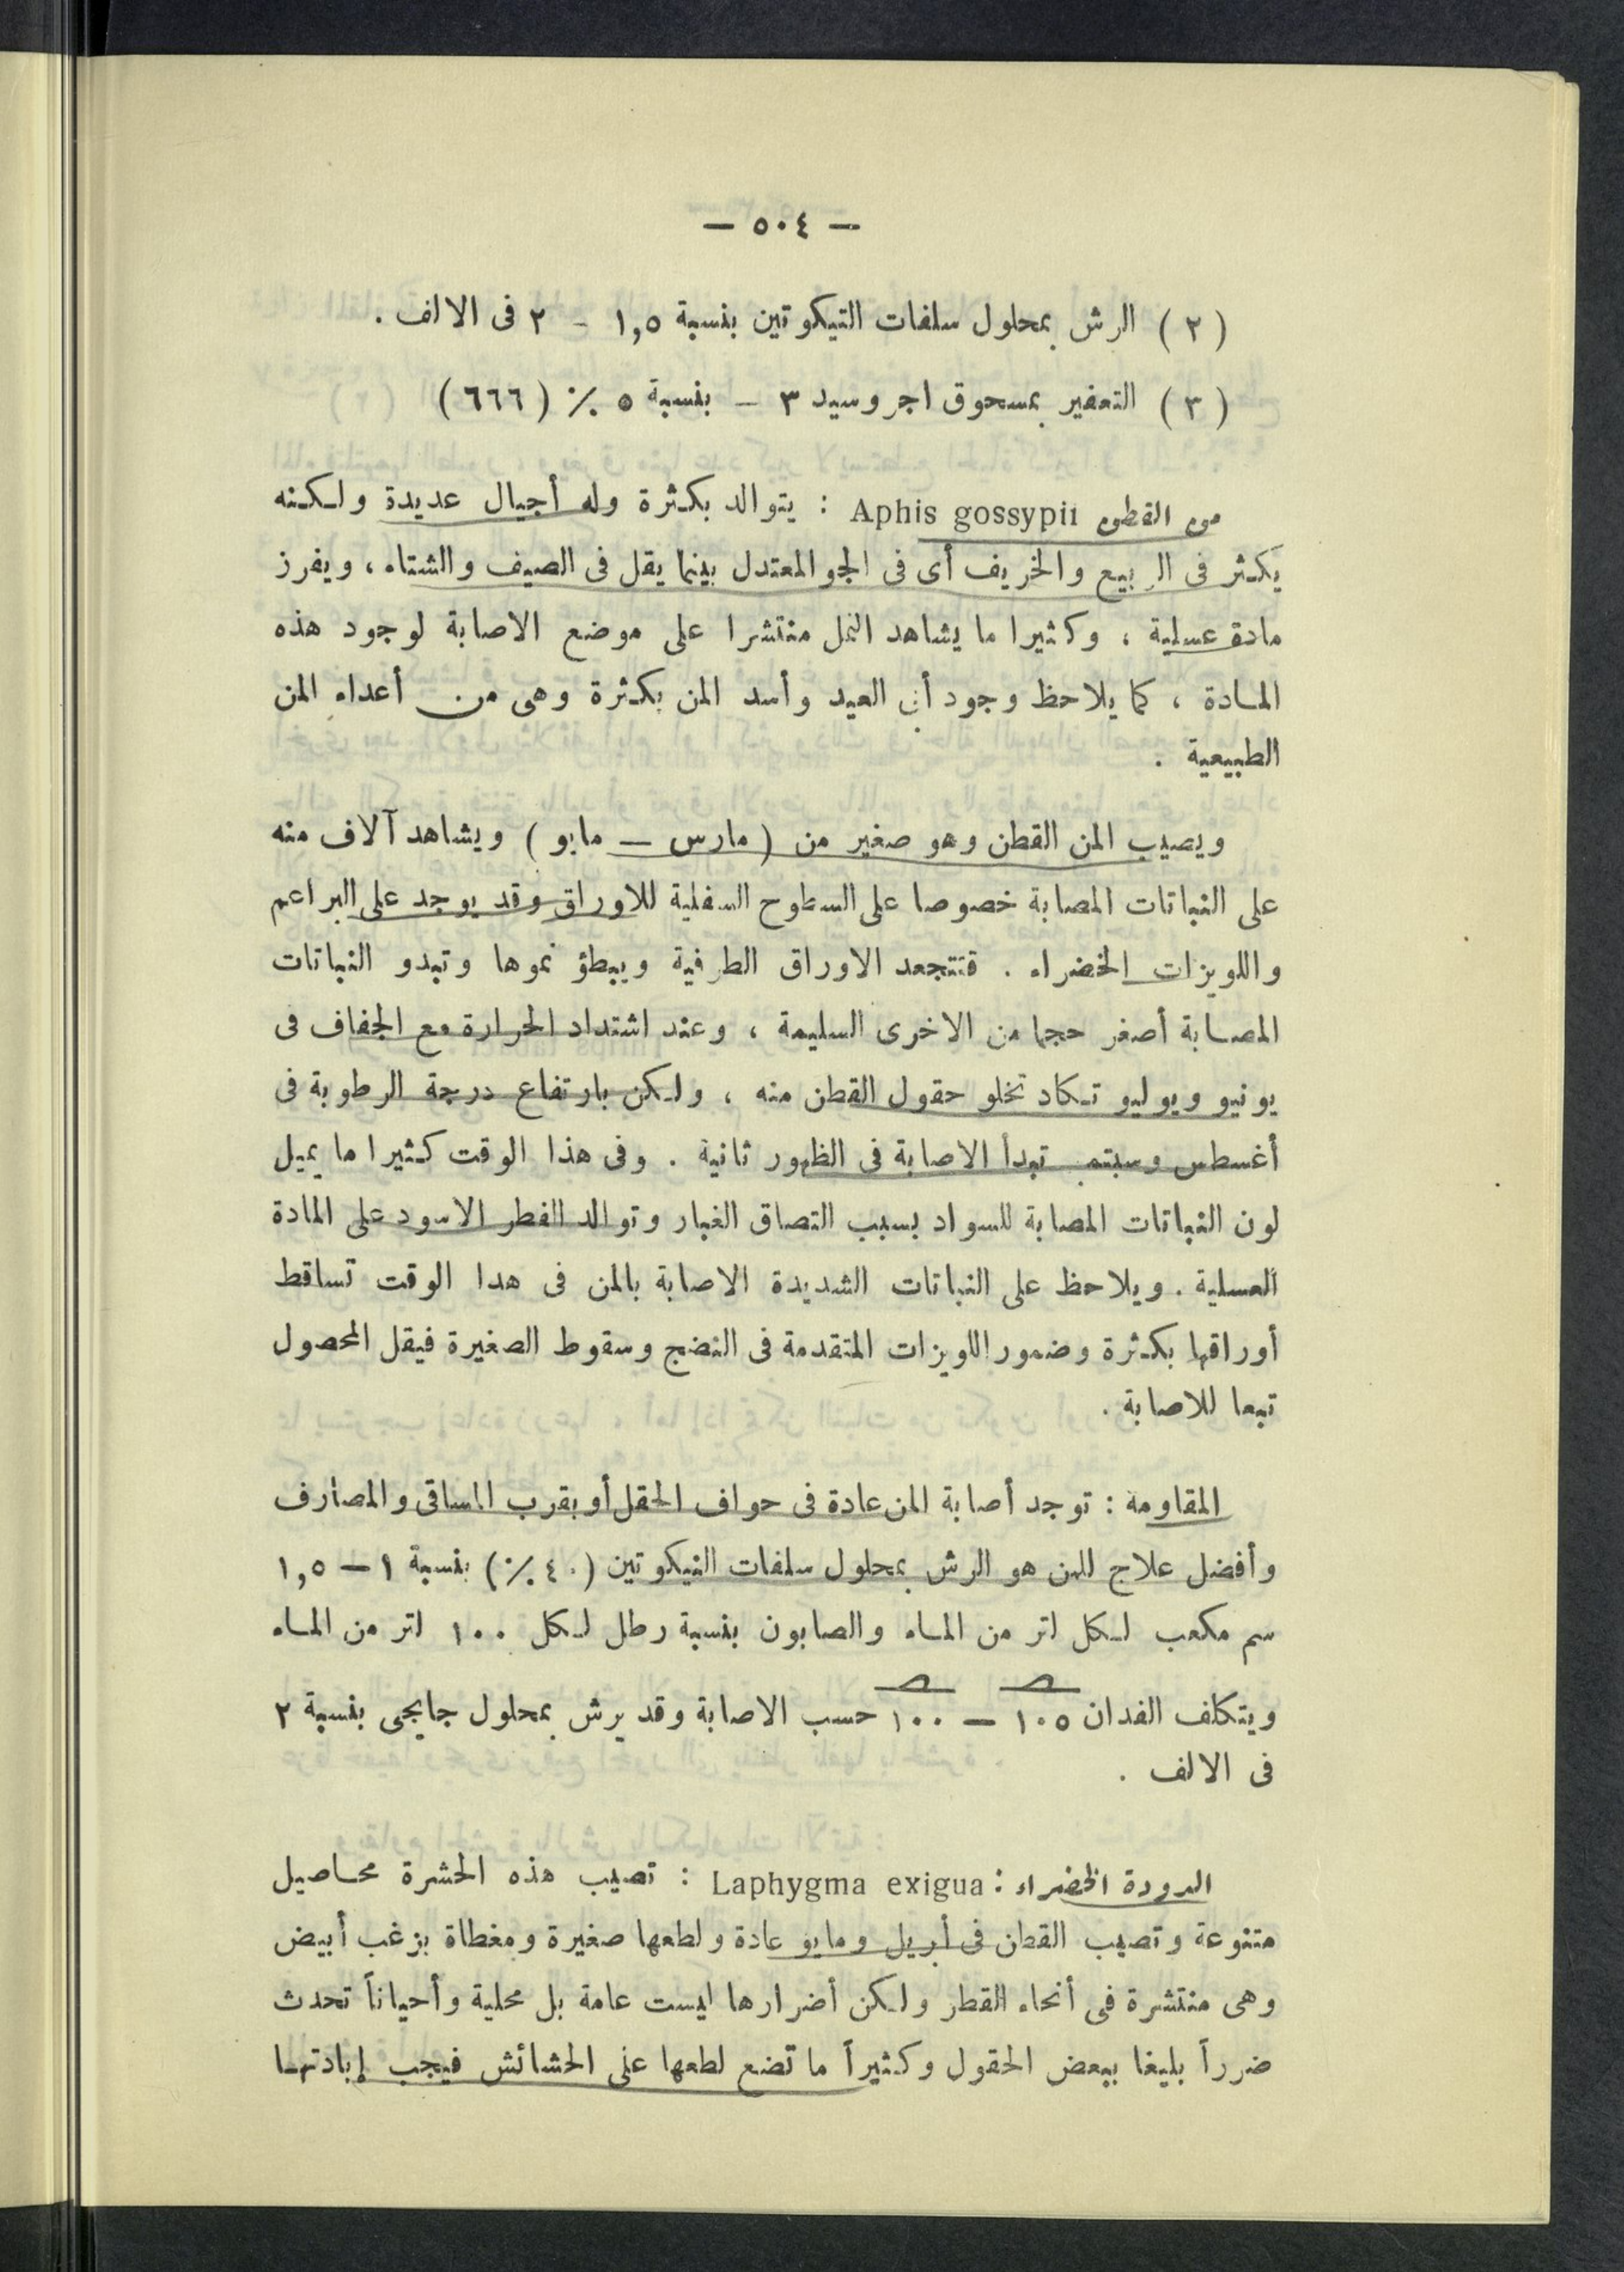 — ٥٠٤ —
( ٢ ) الرش بمحلول سلفات النيكوتين بنسبة ١,٥ - ٢ فى الالف .
( ٣ ) التعفير بمسحوق اجروسيد ٣ - بنسبة ٥ ٪ ( ٦٦٦ )
من القطن Aphis gossypii : يتوالد بكثرة وله أجيال عديدة ولكنه
يكثر فى الربيع والخريف أى فى الجو المعتدل بينما يقل فى الصيف والشتاء ، ويفرز
مادة عسلية ، وكثيرا ما يشاهد النمل منتشرا على موضع الاصابة لوجود هذه
المادة ، كما يلاحظ وجود أبى العيد وأسد المن بكثرة وهى من أعداء المن
الطبيعية .
ويصيب المن القطن وهو صغير من ( مارس — مايو ) ويشاهد آلاف منه
على النباتات المصابة خصوصا على السطوح السفلية للاوراق وقد يوجد على البراعم
واللويزات الخضراء . فتتجعد الاوراق الطرفية ويبطؤ نموها وتبدو النباتات
المصابة أصغر حجما من الاخرى السليمة ، وعند اشتداد الحرارة مع الجفاف فى
يونيو ويوليو تكاد تخلو حقول القطن منه ، ولكن بارتفاع درجة الرطوبة فى
أغسطس وسبتمبر تبدأ الاصابة فى الظهور ثانية . وفى هذا الوقت كثيرا ما يميل
لون النباتات المصابة للسواد بسبب التصاق الغبار وتوالد الفطر الاسود على المادة
العسلية . ويلاحظ على النباتات الشديدة الاصابة بالمن فى هدا الوقت تساقط
أوراقها بكثرة وضمور اللويزات المتقدمة فى النضج وسقوط الصغيرة فيقل المحصول
تبعا للاصابة .
المقاومة : توجد أصابة المن عادة فى حواف الحقل أو بقرب المساقى والمصارف
وأفضل علاج للمن هو الرش بمحلول سلفات النيكوتين (٤٠ ٪) بنسبة ١ — ١,٥
سم مكعب لكل لتر من الماء والصابون بنسبة رطل لكل ١٠٠ لتر من الماء
ويتكلف الفدان ١٠٥ — ١٠٠ حسب الاصابة وقد يرش بمحلول جايجى بنسبة ٢
فى الالف .
الدودة الخضراء : Laphygma exigua : تصيب هذه الحشرة محاصيل
متنوعة وتصيب القطن فى أبريل ومايو عادة ولطعها صغيرة ومغطاة بزغب أبيض
وهى منتشرة فى أنحاء القطر ولكن أضرارها ليست عامة بل محلية وأحياناً تحدث
ضرراً بليغا ببعض الحقول وكثيراً ما تضع لطعها على الحشائش فيجب إبادتها